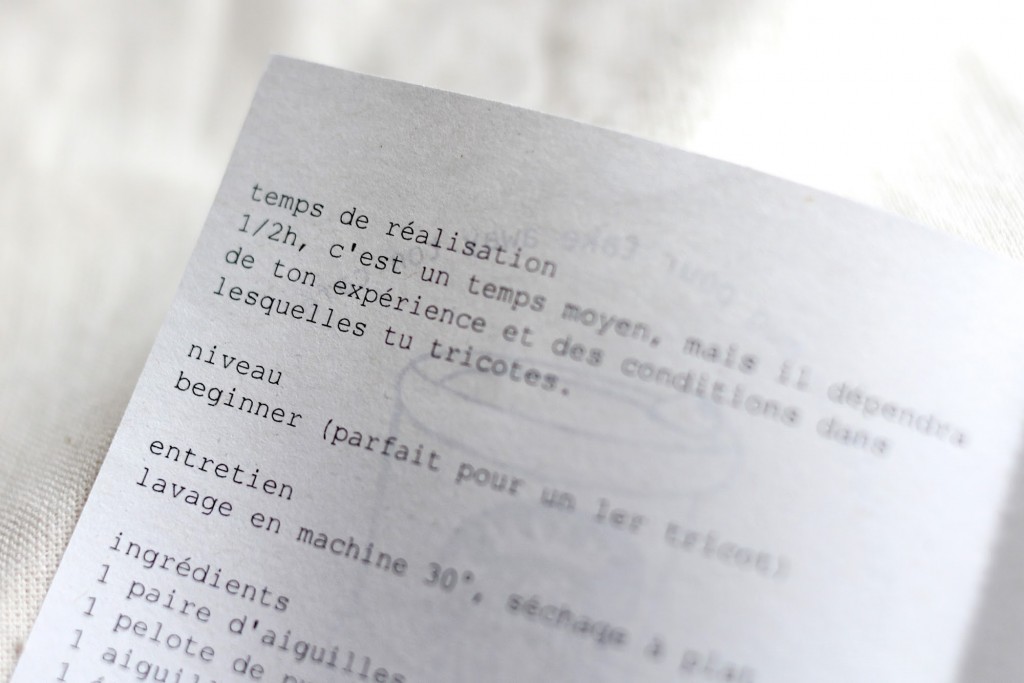 temps de réalisation
1/2h, c'est un temps moyen, mais il dépendra
de ton expérience et des conditions dans
lesquelles tu tricotes.
niveau
beginner (parfait pour un 1er tricot)
entretien
lavage en machine 30°, séchage à plat
ingrédients
1 paire d'aiguilles
1 pelote de
1
1